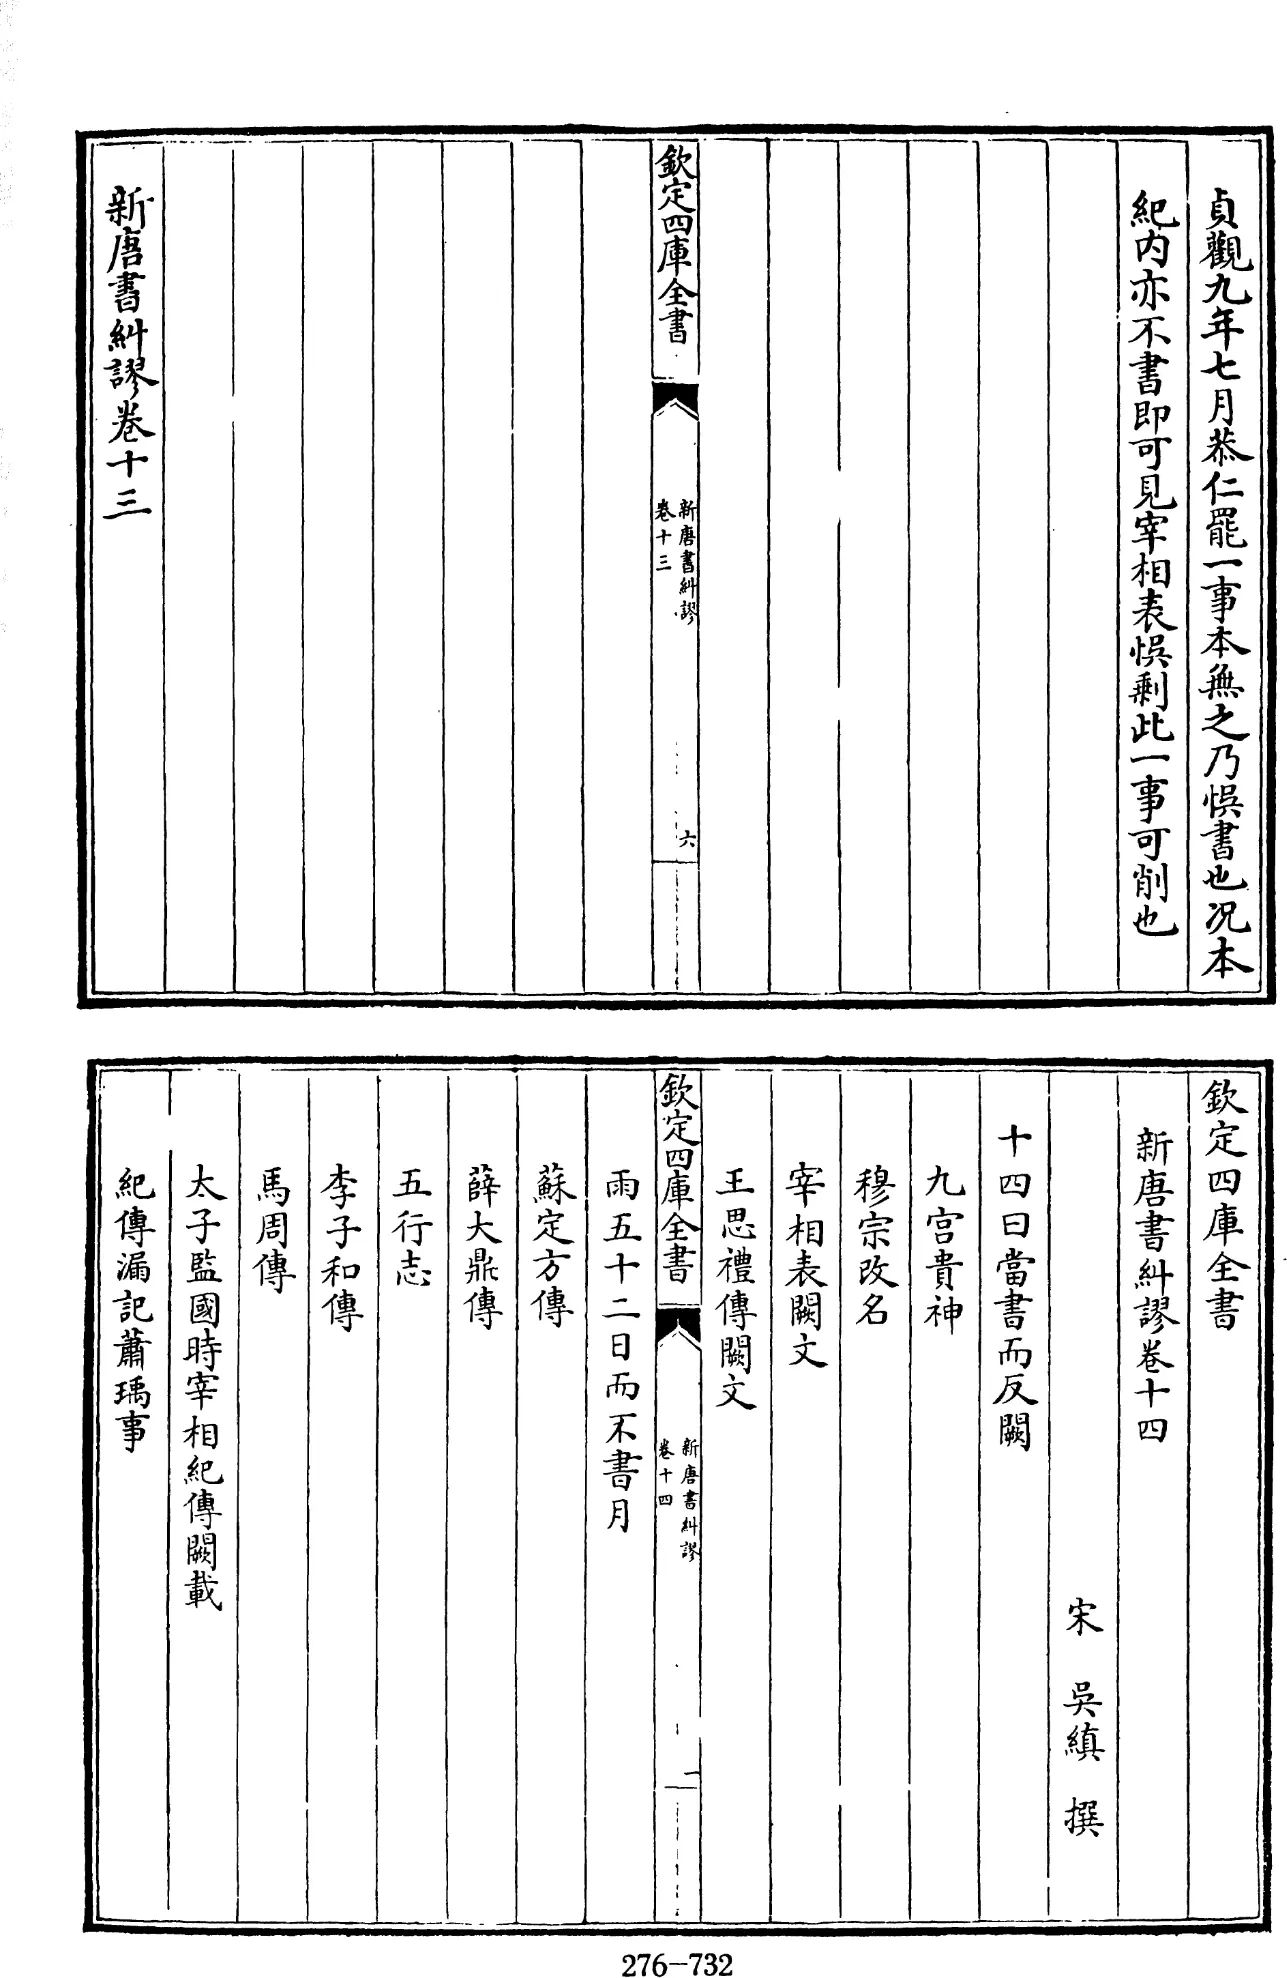 貞觀九年七月恭仁罷一事本無之乃悞書也况本
紀内亦不書即可見宰相表悞剩此一事可削也
欽定四庫全書
新唐書糾謬
卷十三
六
新唐書糾謬卷十三
欽定四庫全書
新唐書糾謬卷十四
宋 吳縝 撰
十四曰當書而反闕
九宫貴神
穆宗改名
宰相表闕文
王思禮傳闕文
欽定四庫全書
新唐書糾謬
卷十四
一
雨五十二日而不書月
蘇定方傳
薛大鼎傳
五行志
李子和傳
馬周傳
太子監國時宰相紀傳闕載
紀傳漏記蕭瑀事
276-732